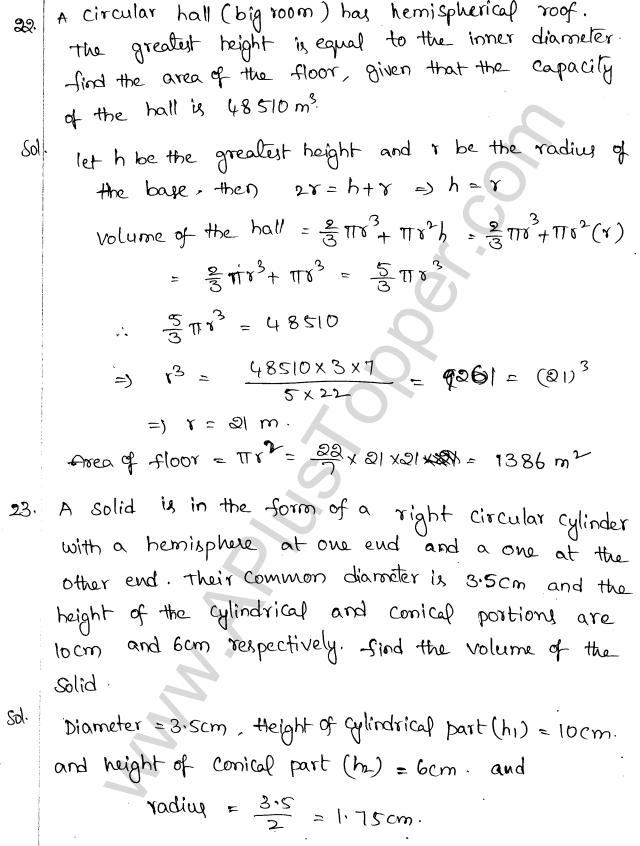 22. A circular hall (big room) has hemispherical roof.
The greatest height is equal to the inner diameter.
find the area of the floor, given that the capacity
of the hall is 48510 m³.
Sol. let h be the greatest height and r be the radius of
the base, then 2r = h + r ⇒ h = r
volume of the hall = 2/3 πr³ + πr²h = 2/3 πr³ + πr²(r)
= 2/3 πr³ + πr³ = 5/3 πr³
∴ 5/3 πr³ = 48510
⇒ r³ = (48510 × 3 × 7)/(5 × 22) = 9261 = (21)³
⇒ r = 21 m.
Area of floor = πr² = 22/7 × 21 × 21 = 1386 m²
23. A solid is in the form of a right circular cylinder
with a hemisphere at one end and a one at the
other end. Their common diameter is 3.5cm and the
height of the cylindrical and conical portions are
10cm and 6cm respectively. find the volume of the
solid.
Sol. Diameter = 3.5cm, Height of cylindrical part (h₁) = 10cm.
and height of conical part (h₂) = 6cm. and
radius = 3.5/2 = 1.75cm.
www.APlusTopper.com